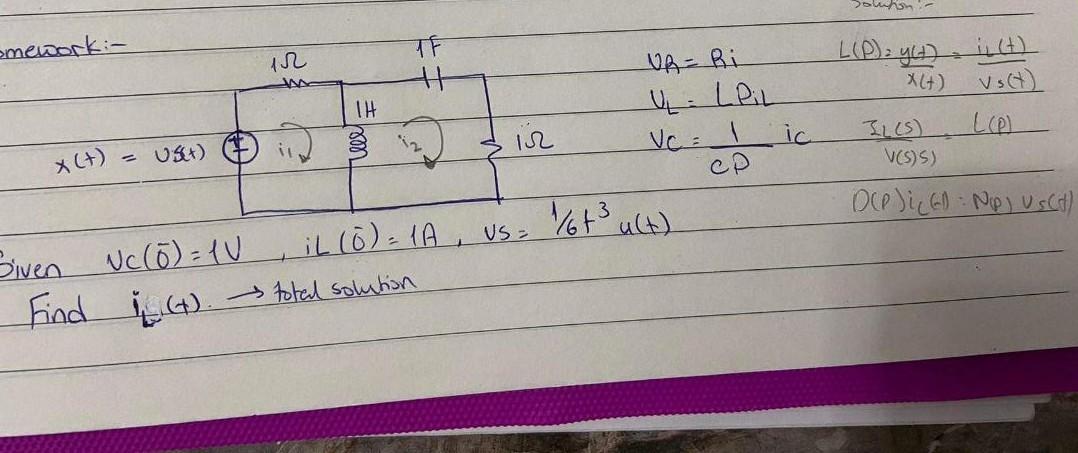 Solution:-
omework:-
1Ω
1F
1H
x(t) = vs(t)
i1
i2
1Ω
VR = Ri
VL = LPiL
VC = 1/CP ic
L(P) = y(t)/x(t) = iL(t)/Vs(t)
IL(S)/V(S)S) = L(P)
D(P)iL(t) = N(P) Vs(t)
Given Vc(0̄) = 1V , iL(0̄) = 1A , vs = 1/6 t³ u(t)
Find iL(t). → total solution